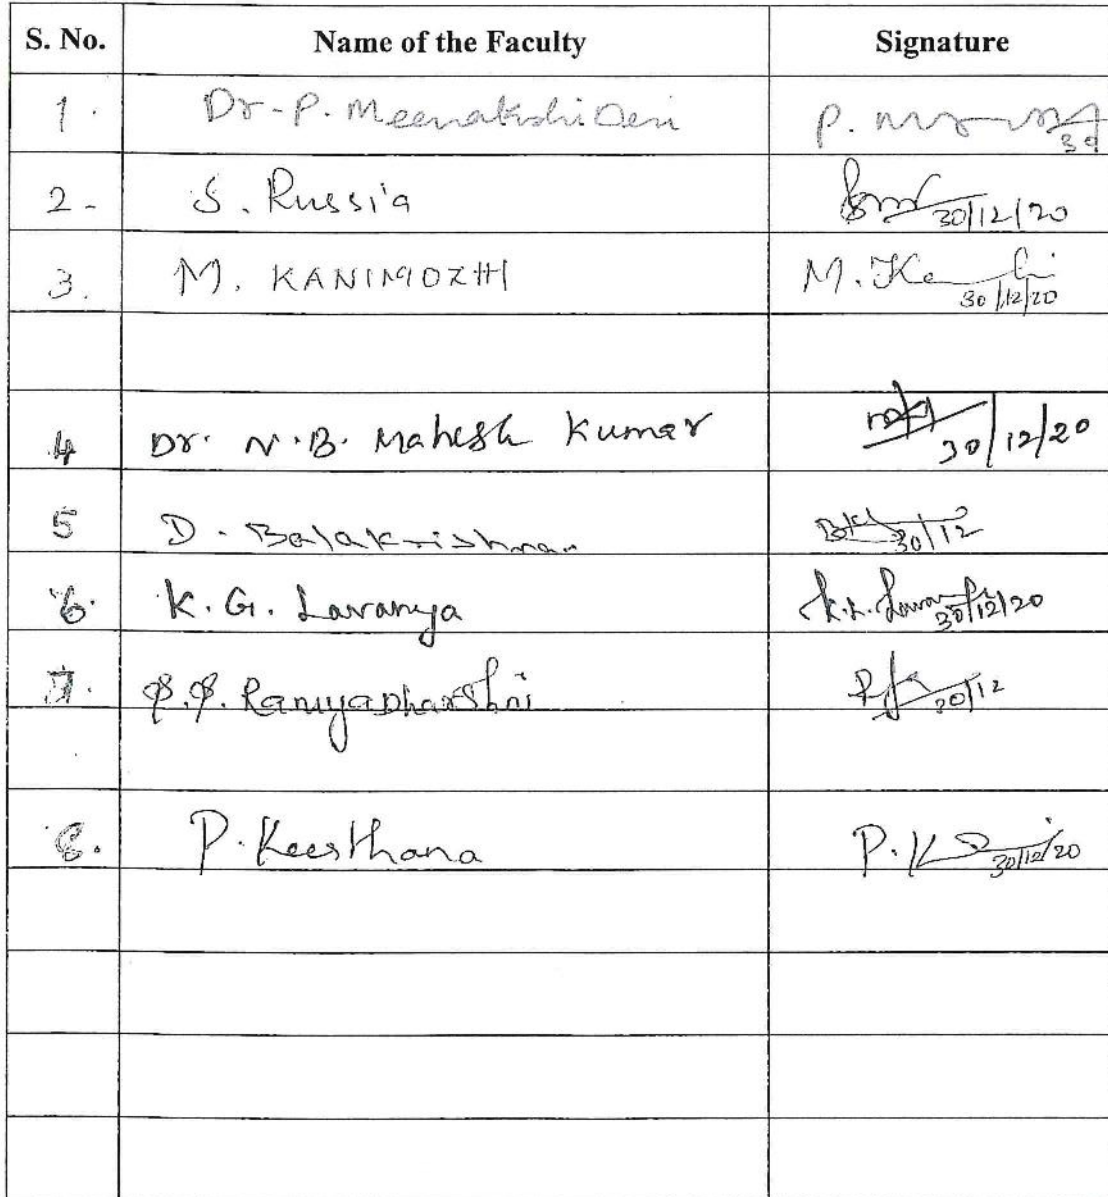 S. No. Name of the Faculty Signature
1. Dr-P. Meenakshi Devi P. 30
2- S. Russia 30/12/20
3. M. KANIMOZHI M. 30/12/20
4 Dr. N.B. Mahesh Kumar 30/12/20
5 D. Balakrishnan 30/12
6. K. G. Lavanya 30/12/20
7. P.P. Ramyadharshni 30/12
8. P. Keerthana P. K 30/12/20